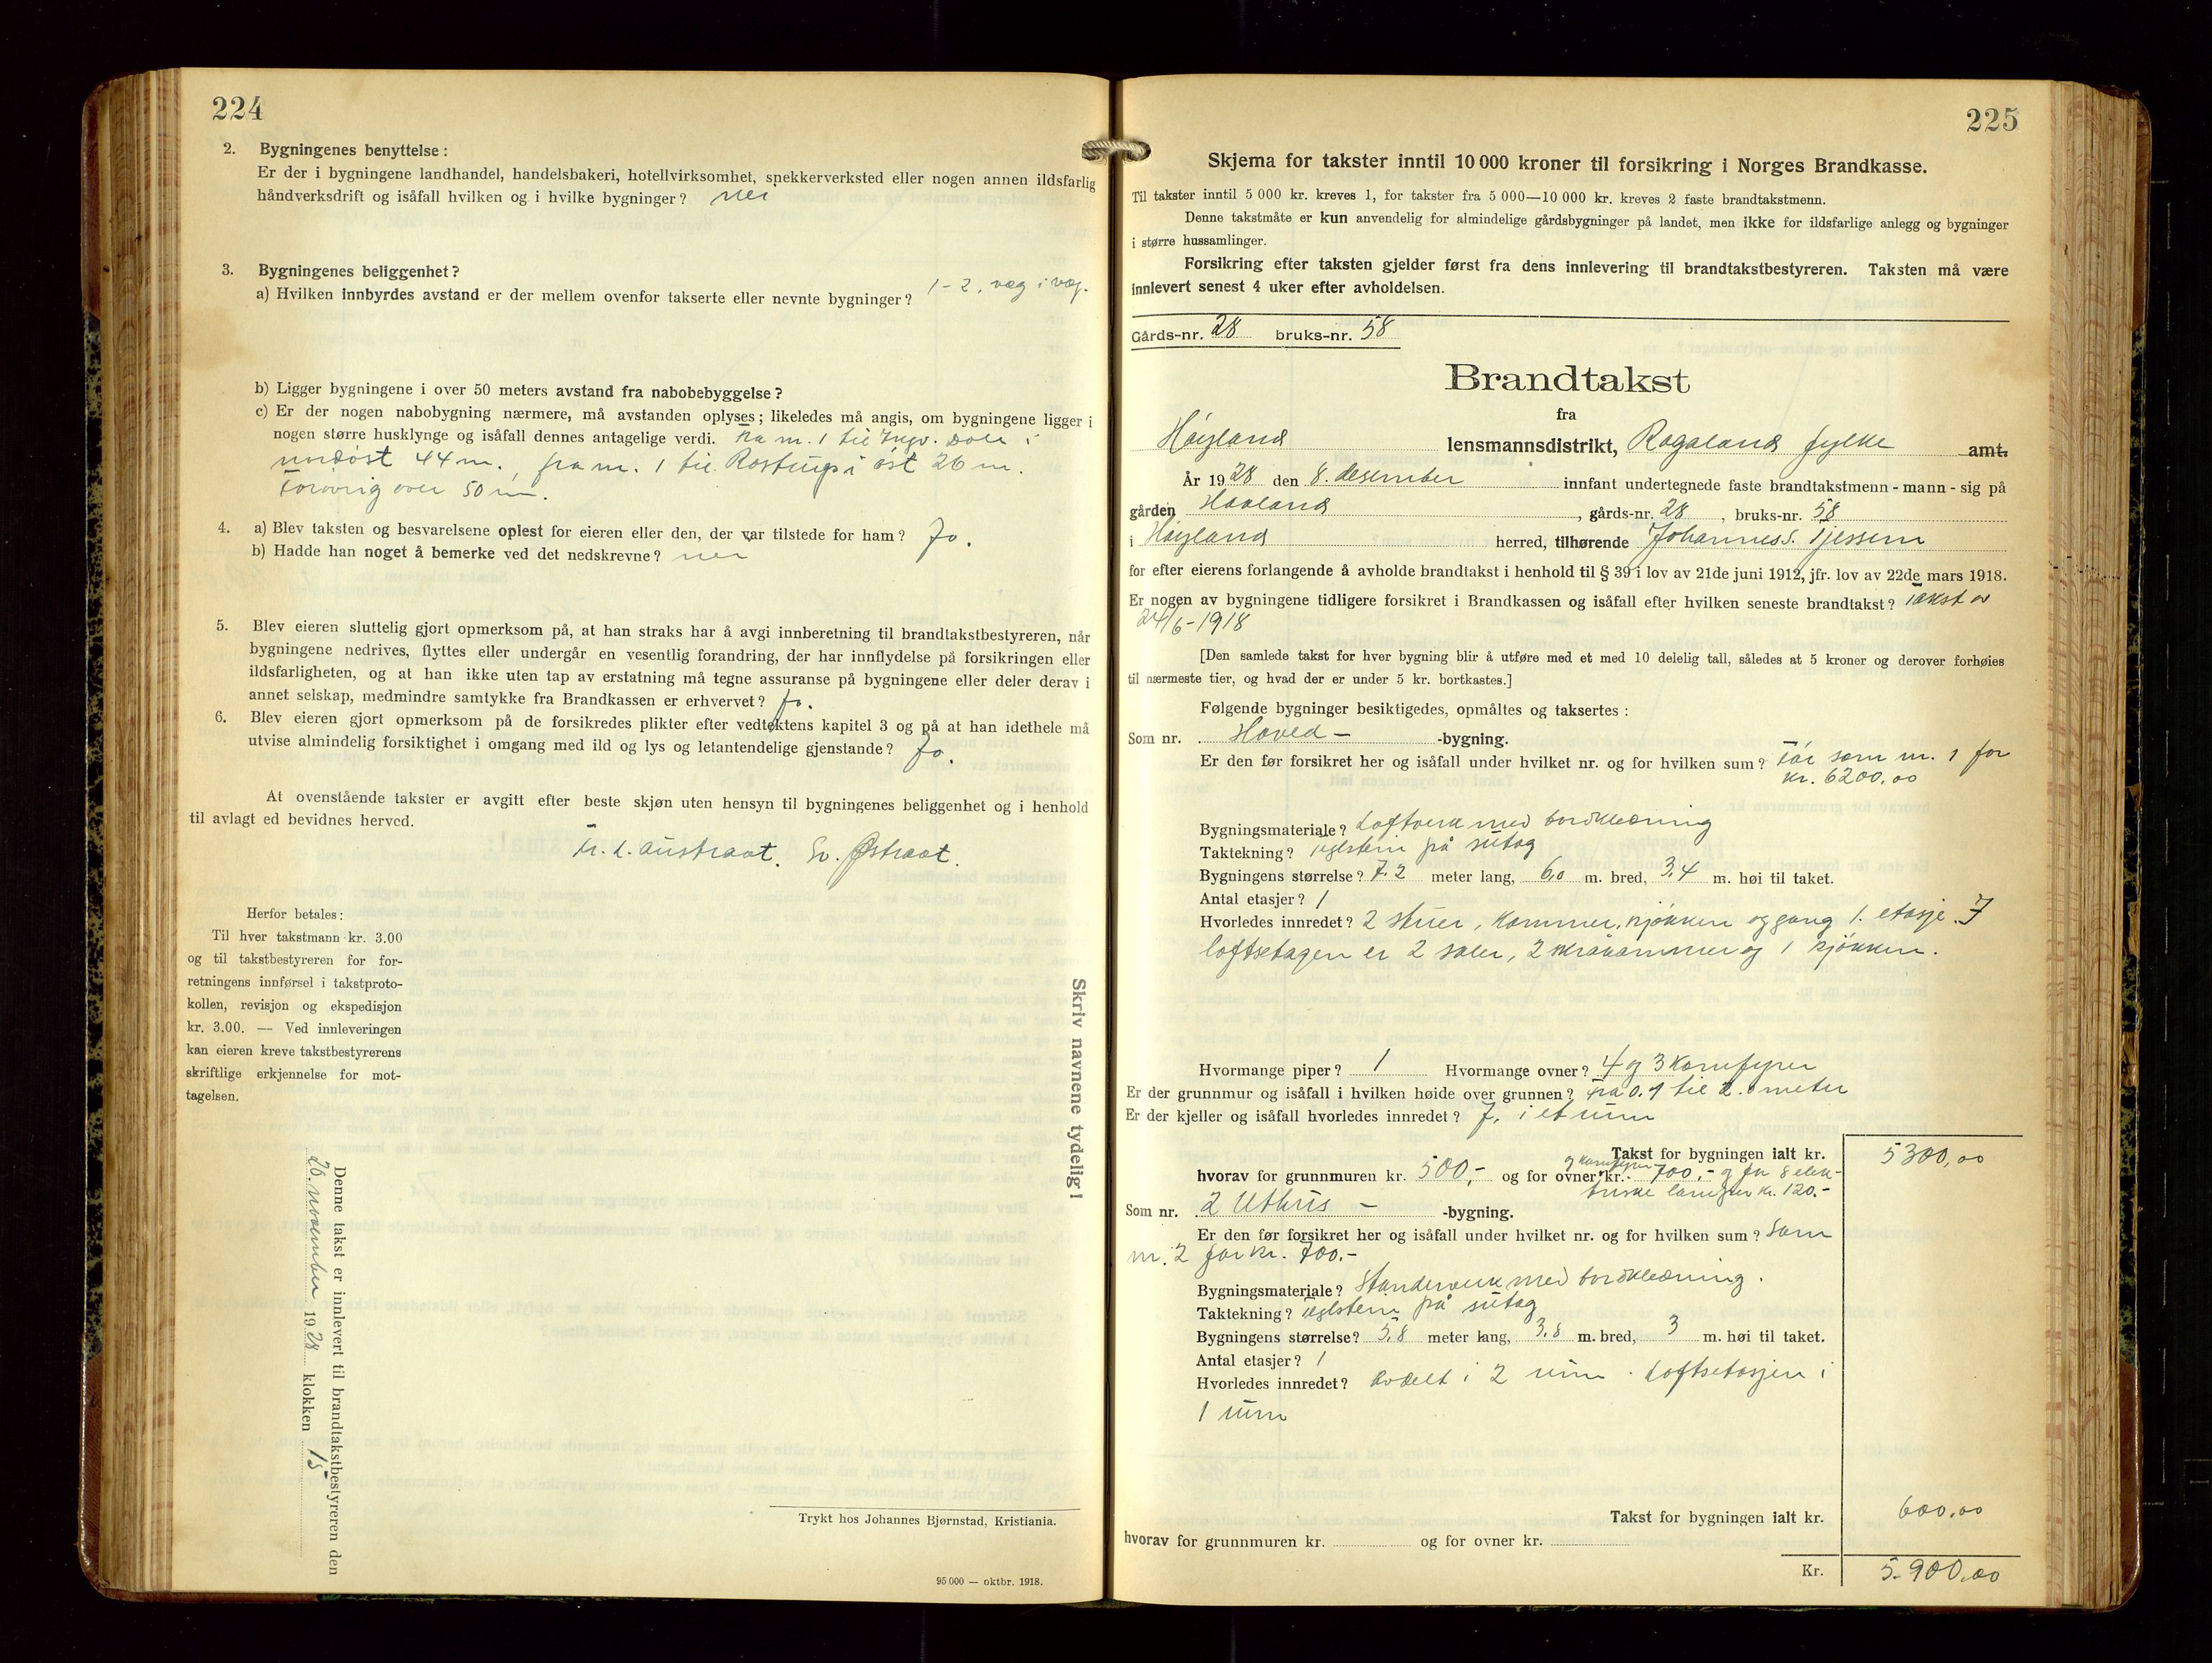 224
2. Bygningenes benyttelse:
Er der i bygningene landhandel, handelsbakeri, hotellvirksomhet, snekkerverksted eller nogen annen ildsfarlig
håndverksdrift og isåfall hvilken og i hvilke bygninger? nei
3. Bygningenes beliggenhet?
a) Hvilken innbyrdes avstand er der mellem ovenfor takserte eller nevnte bygninger? 1-2, væg i væg.
b) Ligger bygningene i over 50 meters avstand fra nabobebyggelse?
c) Er der nogen nabobygning nærmere, må avstanden oplyses; likeledes må angis, om bygningene ligger i
nogen større husklynge og isåfall dennes antagelige verdi. Fra nr. 1 til Ingv. i
nordøst 44 m., fra nr. 1 til Rostrup i øst 26 m.
Forøvrig over 50 m.
4. a) Blev taksten og besvarelsene oplest for eieren eller den, der var tilstede for ham? Ja.
b) Hadde han noget å bemerke ved det nedskrevne? nei
5. Blev eieren sluttelig gjort opmerksom på, at han straks har å avgi innberetning til brandtakstbestyreren, når
bygningene nedrives, flyttes eller undergår en vesentlig forandring, der har innflydelse på forsikringen eller
ildsfarligheten, og at han ikke uten tap av erstatning må tegne assuranse på bygningene eller deler derav i
annet selskap, medmindre samtykke fra Brandkassen er erhvervet? Ja.
6. Blev eieren gjort opmerksom på de forsikredes plikter efter vedtektens kapitel 3 og på at han idethele må
utvise almindelig forsiktighet i omgang med ild og lys og letantendelige gjenstande? Ja.
At ovenstående takster er avgitt efter beste skjøn uten hensyn til bygningenes beliggenhet og i henhold
til avlagt ed bevidnes herved.
Tr. L. Austraat. Sv. Østraat.
Herfor betales:
Til hver takstmann kr. 3.00
og til takstbestyreren for for-
retningens innførsel i takstproto-
kollen, revisjon og ekspedisjon
kr. 3.00. — Ved innleveringen
kan eieren kreve takstbestyrerens
skriftlige erkjennelse for mot-
tagelsen.
Skriv navnene tydelig!
Denne takst er innlevert til brandtakstbestyreren den
20. november 1928 klokken 15
Trykt hos Johannes Bjørnstad, Kristiania.
95 000 — oktbr. 1918.
225
Skjema for takster inntil 10 000 kroner til forsikring i Norges Brandkasse.
Til takster inntil 5 000 kr. kreves 1, for takster fra 5 000—10 000 kr. kreves 2 faste brandtakstmenn.
Denne takstmåte er kun anvendelig for almindelige gårdsbygninger på landet, men ikke for ildsfarlige anlegg og bygninger
i større hussamlinger.
Forsikring efter taksten gjelder først fra dens innlevering til brandtakstbestyreren. Taksten må være
innlevert senest 4 uker efter avholdelsen.
Gårds-nr. 28 bruks-nr. 58
Brandtakst
fra
Høyland lensmannsdistrikt, Rogaland fylke amt.
År 1928 den 8. desember innfant undertegnede faste brandtakstmenn - mann - sig på
gården Haaland, gårds-nr. 28, bruks-nr. 58
i Høyland herred, tilhørende Johannes S. Tjessem
for efter eierens forlangende å avholde brandtakst i henhold til § 39 i lov av 21de juni 1912, jfr. lov av 22de mars 1918.
Er nogen av bygningene tidligere forsikret i Brandkassen og isåfall efter hvilken seneste brandtakst? Takst av
24/6-1918
[Den samlede takst for hver bygning blir å utføre med et med 10 delelig tall, således at 5 kroner og derover forhøies
til nærmeste tier, og hvad der er under 5 kr. bortkastes.]
Følgende bygninger besiktigedes, opmåltes og taksertes:
Som nr. Hoved- -bygning.
Er den før forsikret her og isåfall under hvilket nr. og for hvilken sum? Før som nr. 1 for
kr. 6200,00
Bygningsmateriale? Loftverk med bordklædning
Taktekning? Teglstein på sutag
Bygningens størrelse? 7.2 meter lang, 6,0 m. bred, 3,4 m. høi til taket.
Antal etasjer? 1
Hvorledes innredet? 2 stuer, kammer, kjøkken og gang 1. etasje. I
loftsetagen er 2 saler, 2 skråkammer og 1 kjøkken.
Hvormange piper? 1 Hvormange ovner? 4 og 3 komfyrer
Er der grunnmur og isåfall i hvilken høide over grunnen? Fra 0.1 til 2.0 meter
Er der kjeller og isåfall hvorledes innredet? J. i et rum
Takst for bygningen ialt kr. 5300,00
hvorav for grunnmuren kr. 500,- og for ovner og komfyrer kr. 700,- og for 8 elek-
triske kr. 120.-
Som nr. 2 Uthus - -bygning.
Er den før forsikret her og isåfall under hvilket nr. og for hvilken sum? Som
nr. 2 for kr. 700.-
Bygningsmateriale? Standerverk med bordklædning.
Taktekning? Teglstein på sutag
Bygningens størrelse? 5,8 meter lang, 3,8 m. bred, 3 m. høi til taket.
Antal etasjer? 1
Hvorledes innredet? Avdelt i 2 rum. Loftsetasjen i
1 rum
Takst for bygningen ialt kr. 600,00
hvorav for grunnmuren kr. og for ovner kr.
Kr. 5.900,00